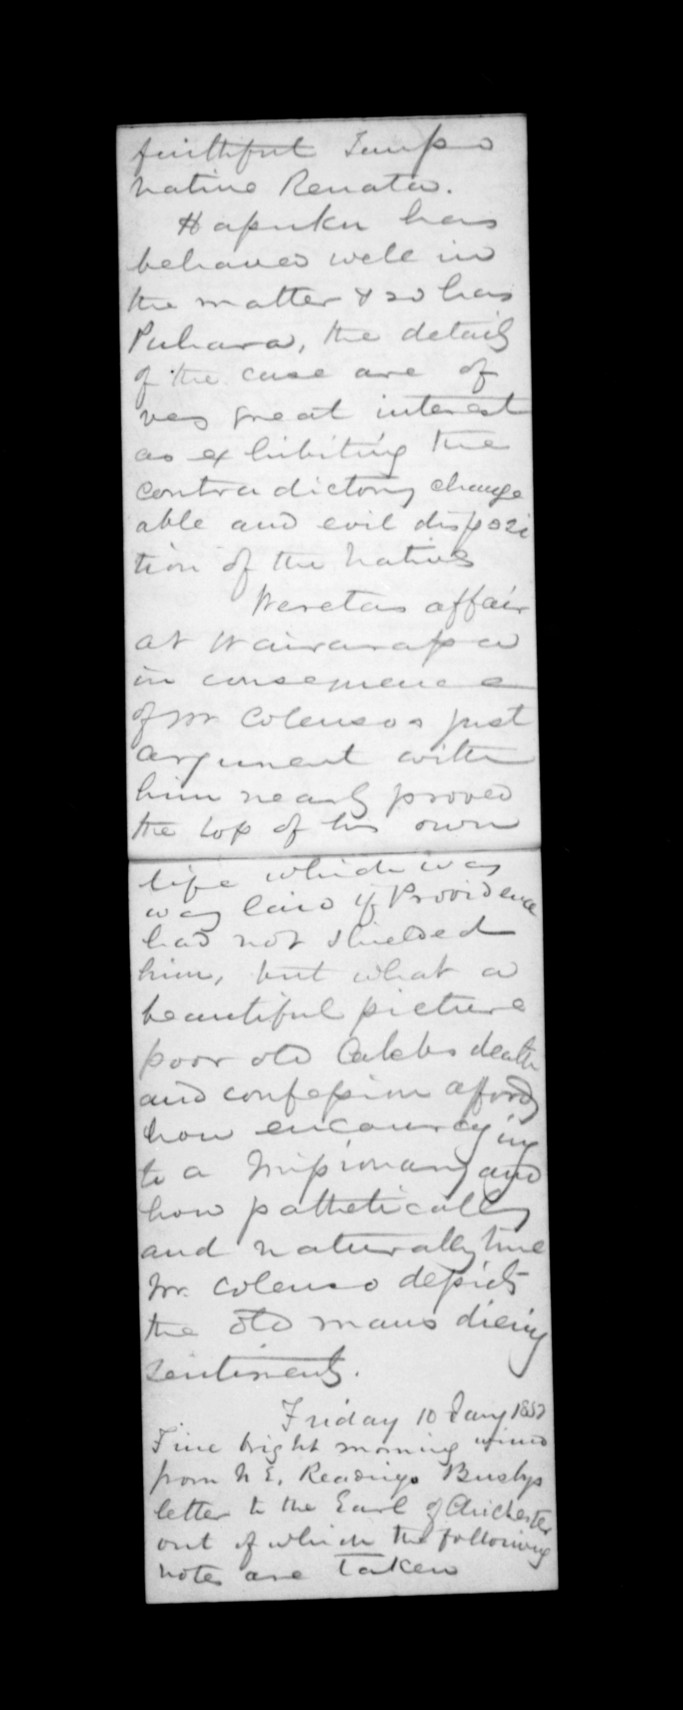 faithful
native Renata.
Hapuku has
behaved well in
the matter & so has
Puhara, the details
of the case are of
very great interest
as exhibiting the
contradictory change
able and evil disposi
tion of the Natives
Wereta's affair
at Wairarapa
in consequence
of Mr Colenso's just
argument with
him nearly proved
the loss of his own
life which was
way laid if Providence
had not shielded
him, but what a
beautiful picture
poor old Calebs death
and confession affords
how encouraging
to a Missionary and
how pathetically
and naturally true
Mr. Colenso depicts
the old mans dieing
sentiments.
Friday 10 Jany 1852
Fine bright morning wind
from N E. Readings Busbys
letter to the Earl of Chichester
out of which the following
notes are taken